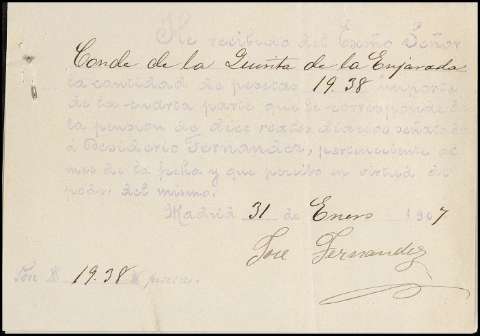 He recibido del Exmo Señor
Conde de la Quinta de la Enjarada
la cantidad de pesetas 19.38 importe
de la cuarta parte que le corresponde de
la pension de diez reales diarios señalada
á Desiderio Fernandez, perteneciente al
mes de la fecha y que percibo en virtud de
poder del mismo.
Madrid 31 de Enero 1907
Jose Fernandez
Son # 19.38 # pesetas.